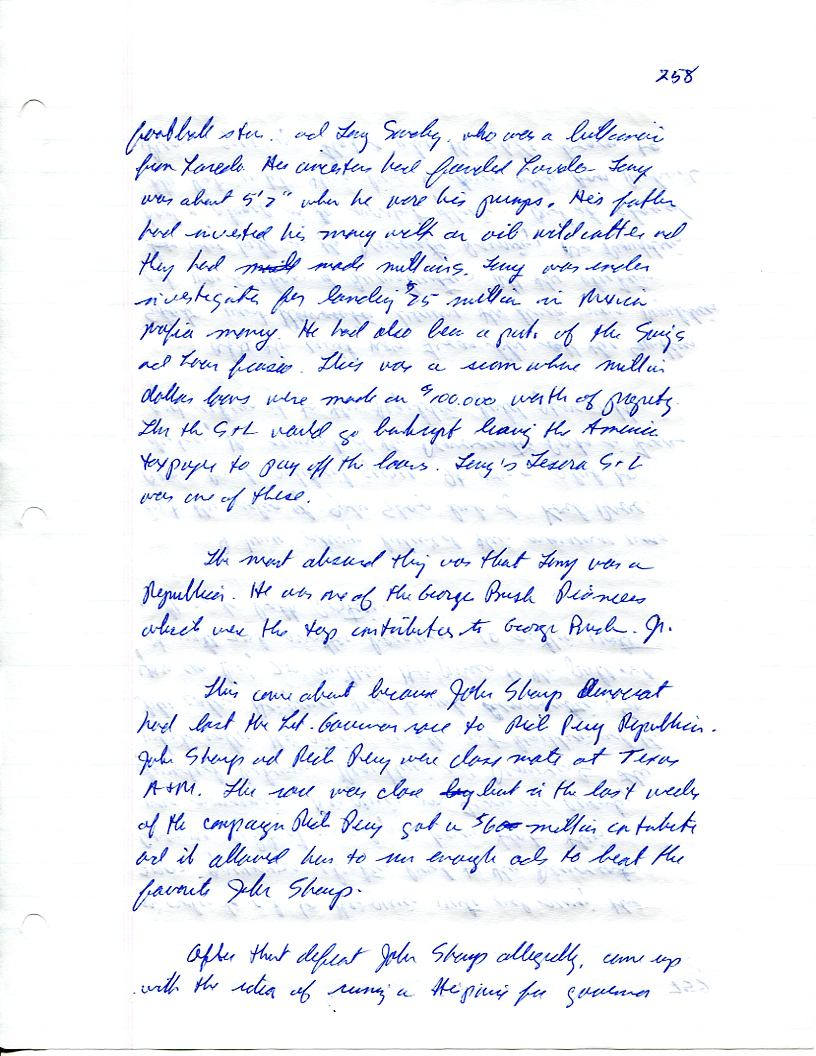 258
football star. and Tony Sanchez. who was a billionair
from Laredo. His ancestors had founded Laredo. Tony
was about 5'7" when he wore his pumps. His father
had invested his money with an oil wildcatter and
they had made millions. Tony was under
investigation for landing $25 million in Mexican
mafia money. He had also been a part of the Savings
and Loan fiasco. This was a scam where million
dollar loans were made on $100.000 worth of property.
Then the S+L would go bankrupt leaving the American
taxpayer to pay off the loans. Tony's Tesoro S+L
was one of these.
The most absurd thing was that Tony was a
Republican. He was one of the George Bush Pioneers
which were the top contributors to George Bush. Jr.
This came about because John Sharp Democrat
had lost the Lt. Governor race to Rick Perry Republican.
John Sharp and Rick Perry were classmate at Texas
A+M. The race was close but in the last weeks
of the campaign Rick Perry got a million contribution
and it allowed him to run enough ads to beat the
favorite John Sharp.
After that defeat John Sharp allegedly, came up
with the idea of running a Hispanic for governor